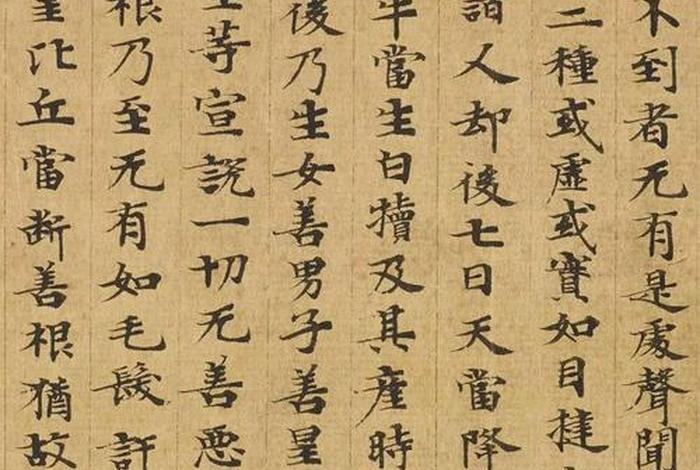 不到者无有是處聲聞
二種或虛或實如目揵
諸人却後七日天當降
牛當生白犢及其產時
後乃生女善男子善星
生等宣說一切无善悪
根乃至无有如毛髮許
星比丘當断善根猶故